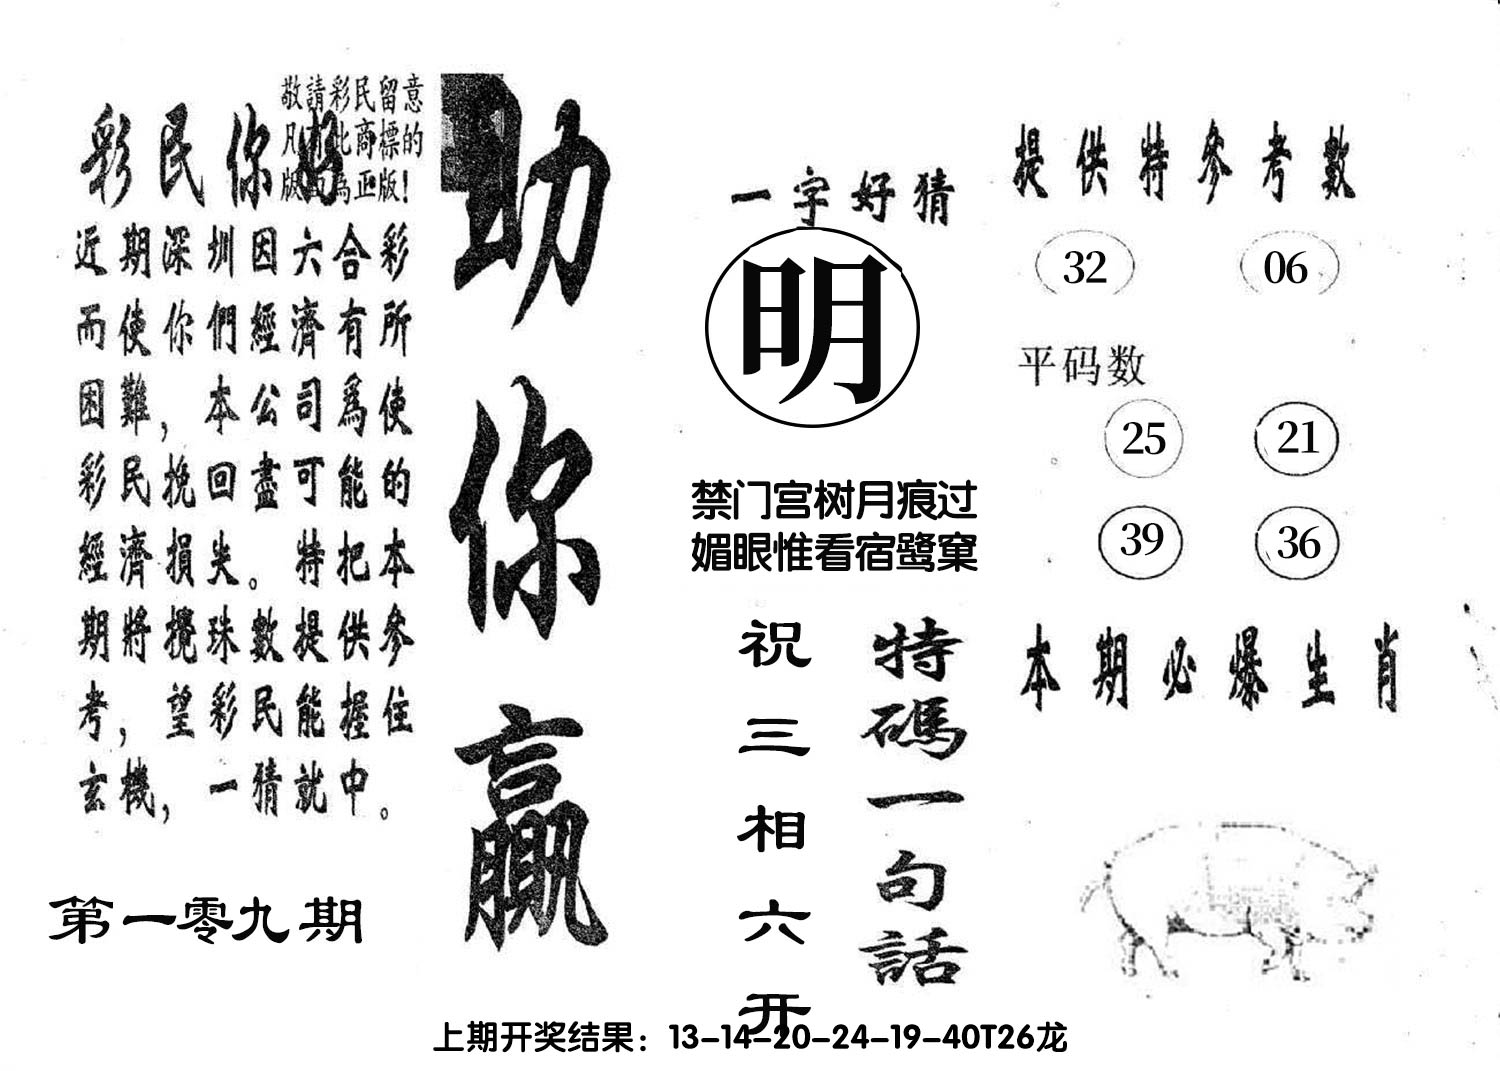 敬請彩民留意
凡有此商標的
版面為正版!
彩民你好
近期深圳因六合彩
而使你們經濟有所
困難,本公司爲使
彩民挽回盡可能的
經濟損失。特把本
期將攪珠數提供參
考,望彩民能握住
玄機,一猜就中。
第一零九期
助你贏
一字好猜
明
禁门宫树月痕过
媚眼惟看宿鹭窠
特碼一句話
祝三相六开
提供特參考數
32 06
平码数
25 21
39 36
本期必爆生肖
上期开奖结果：13-14-20-24-19-40T26龙